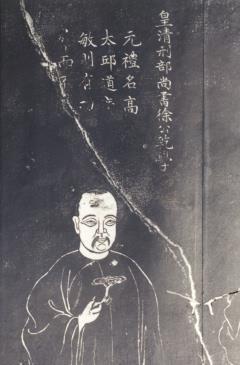 皇清刑部尚書徐公乾學
元禮名高
太邱道
敏則有功
而